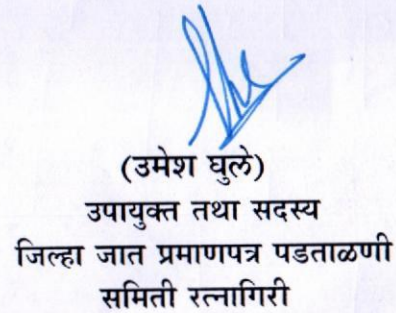 (उमेश घुले)
उपायुक्त तथा सदस्य
जिल्हा जात प्रमाणपत्र पडताळणी
समिती रत्नागिरी